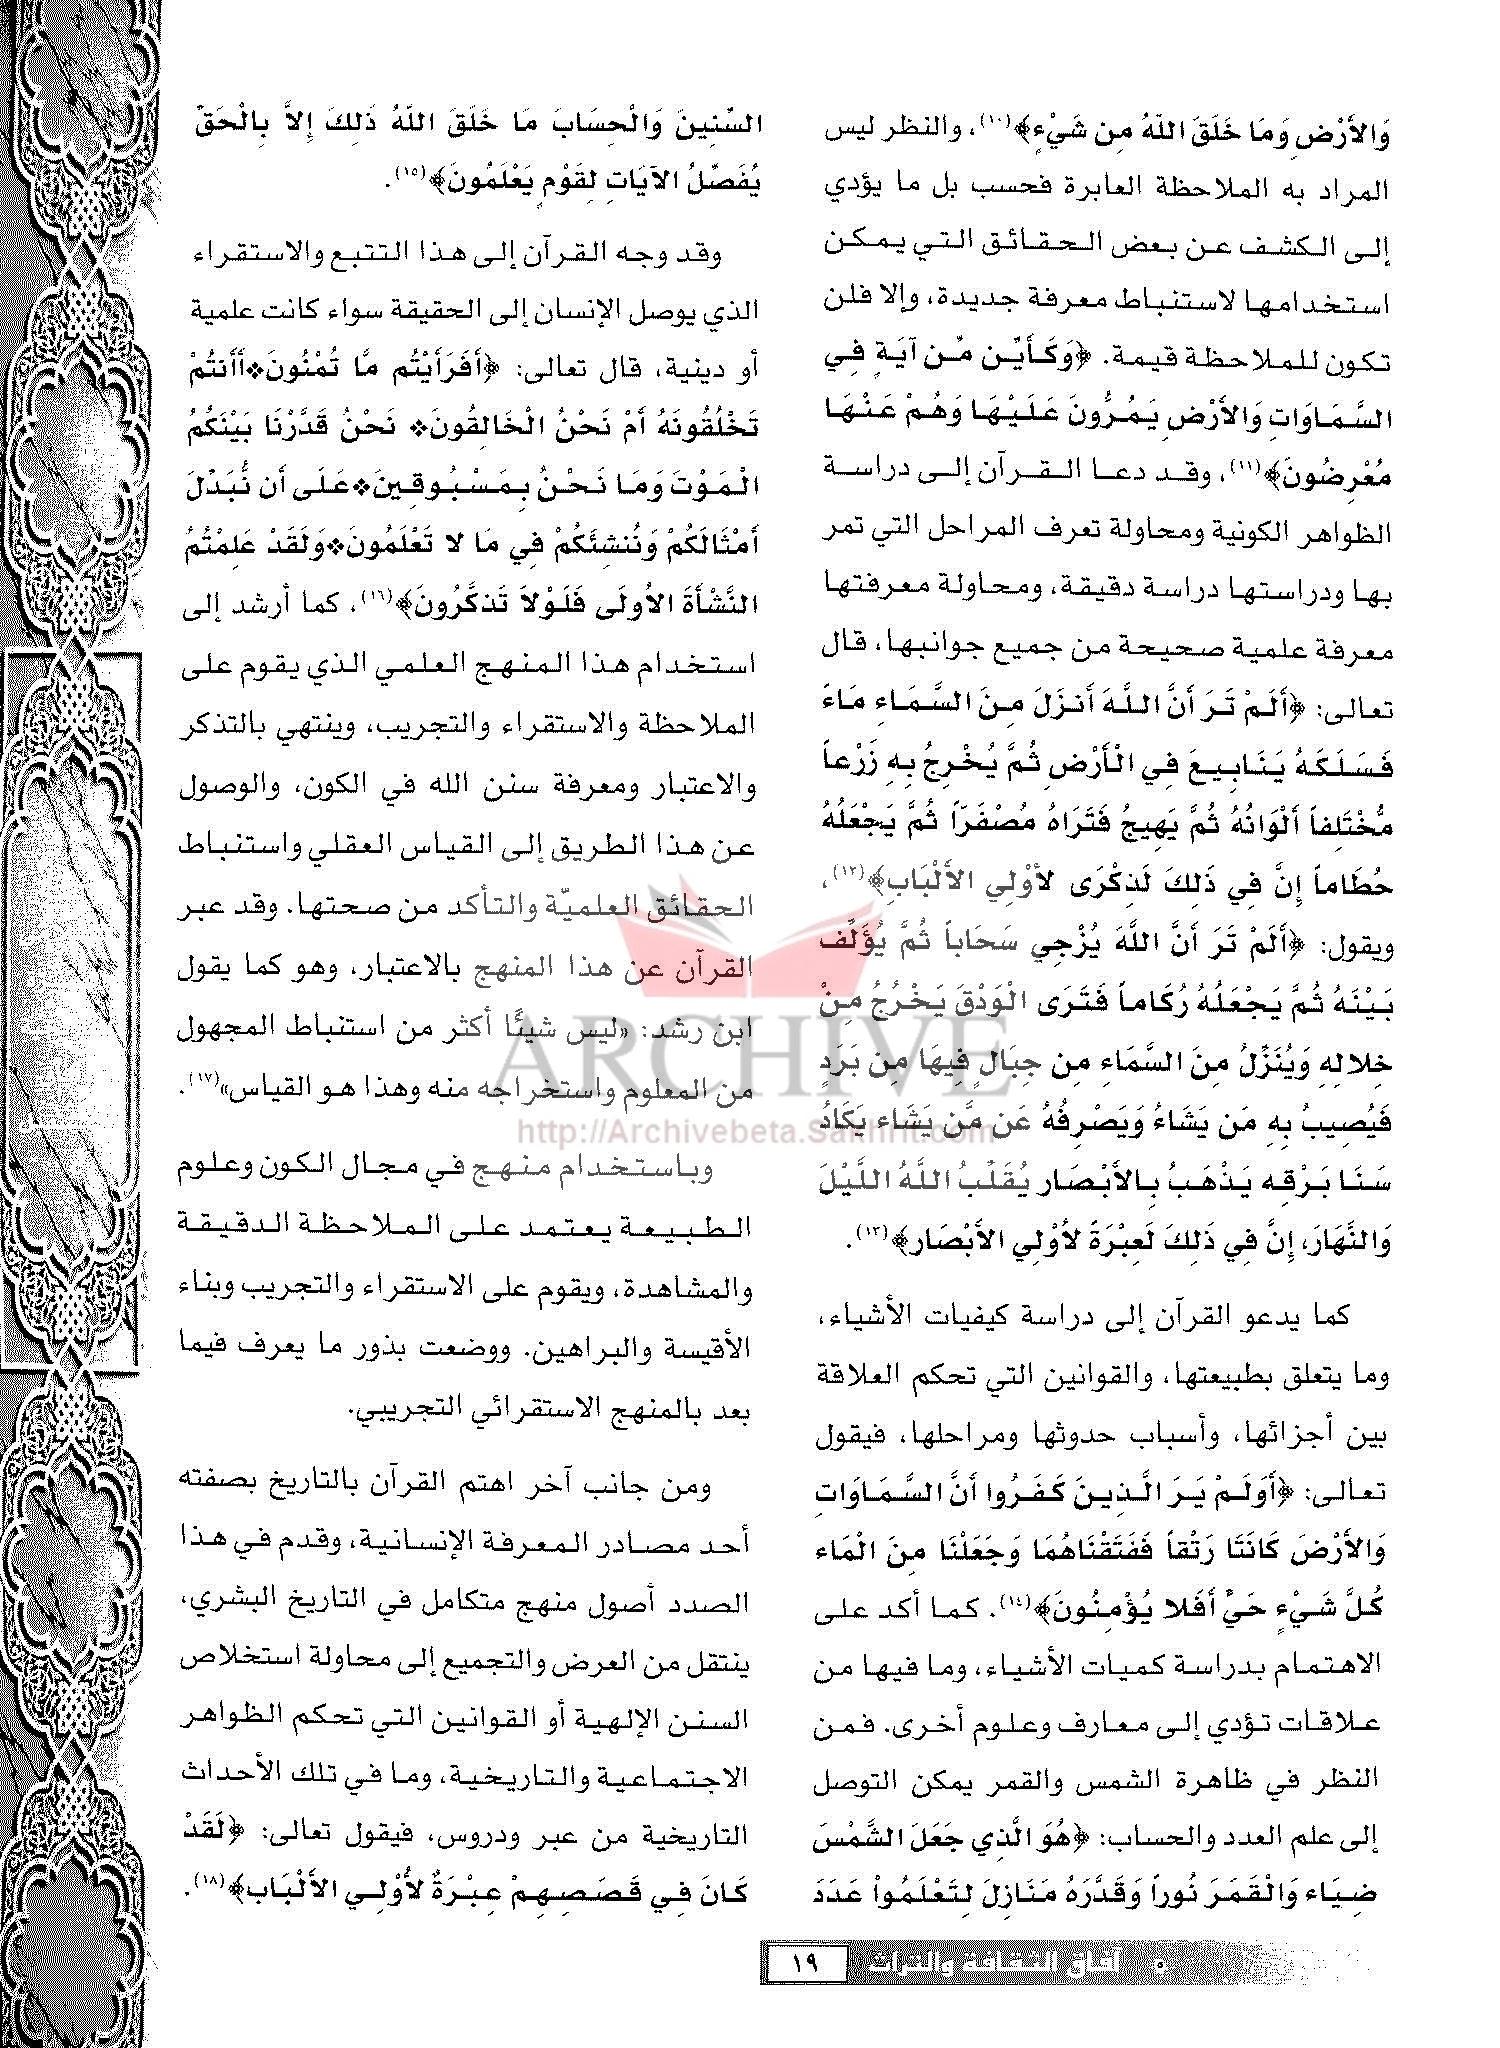 وَالأَرْضِ وَمَا خَلَقَ اللّهُ مِن شَيْءٍ﴾(١٠)، والنظر ليس
المراد به الملاحظة العابرة فحسب بل ما يؤدي
إلى الكشف عن بعض الحقائق التي يمكن
استخدامها لاستنباط معرفة جديدة، وإلا فلن
تكون للملاحظة قيمة. ﴿وَكَأَيِّن مِّن آيَةٍ فِي
السَّمَاوَاتِ وَالأَرْضِ يَمُرُّونَ عَلَيْهَا وَهُمْ عَنْهَا
مُعْرِضُونَ﴾(١١)، وقد دعا القرآن إلى دراسة
الظواهر الكونية ومحاولة تعرف المراحل التي تمر
بها ودراستها دراسة دقيقة، ومحاولة معرفتها
معرفة علمية صحيحة من جميع جوانبها، قال
تعالى: ﴿أَلَمْ تَرَ أَنَّ اللَّهَ أَنزَلَ مِنَ السَّمَاءِ مَاءً
فَسَلَكَهُ يَنَابِيعَ فِي الْأَرْضِ ثُمَّ يُخْرِجُ بِهِ زَرْعاً
مُّخْتَلِفاً أَلْوَانُهُ ثُمَّ يَهِيجُ فَتَرَاهُ مُصْفَرّاً ثُمَّ يَجْعَلُهُ
حُطَاماً إِنَّ فِي ذَلِكَ لَذِكْرَى لأُوْلِي الأَلْبَابِ﴾(١٢)،
ويقول: ﴿أَلَمْ تَرَ أَنَّ اللَّهَ يُزْجِي سَحَاباً ثُمَّ يُؤَلِّف
بَيْنَهُ ثُمَّ يَجْعَلُهُ رُكَاماً فَتَرَى الْوَدْقَ يَخْرُجُ مِنْ
خِلالِهِ وَيُنَزِّلُ مِنَ السَّمَاءِ مِن جِبَالٍ فِيهَا مِن بَرَدٍ
فَيُصِيبُ بِهِ مَن يَشَاءُ وَيَصْرِفُهُ عَن مَّن يَشَاء يَكَادُ
سَنَا بَرْقِه يَذْهَبُ بِالأَبْصَارِ يُقَلِّبُ اللَّهُ اللَّيْلَ
وَالنَّهَارَ، إِنَّ فِي ذَلِكَ لَعِبْرَةً لأُوْلِي الأَبْصَارِ﴾(١٣).
كما يدعو القرآن إلى دراسة كيفيات الأشياء،
وما يتعلق بطبيعتها، والقوانين التي تحكم العلاقة
بين أجزائها، وأسباب حدوثها ومراحلها، فيقول
تعالى: ﴿أَوَلَمْ يَرَ الَّذِينَ كَفَرُوا أَنَّ السَّمَاوَاتِ
وَالأَرْضَ كَانَتَا رَتْقاً فَفَتَقْنَاهُمَا وَجَعَلْنَا مِنَ الْمَاء
كُلَّ شَيْءٍ حَيٍّ أَفَلا يُؤْمِنُونَ﴾(١٤). كما أكد على
الاهتمام بدراسة كميات الأشياء، وما فيها من
علاقات تؤدي إلى معارف وعلوم أخرى. فمن
النظر في ظاهرة الشمس والقمر يمكن التوصل
إلى علم العدد والحساب: ﴿هُوَ الَّذِي جَعَلَ الشَّمْسَ
ضِيَاء وَالْقَمَرَ نُوراً وَقَدَّرَهُ مَنَازِلَ لِتَعْلَمُواْ عَدَدَ
السِّنِينَ وَالْحِسَابَ مَا خَلَقَ اللّهُ ذَلِكَ إِلاَّ بِالْحَقِّ
يُفَصِّلُ الآيَاتِ لِقَوْمٍ يَعْلَمُونَ﴾(١٥).
وقد وجه القرآن إلى هذا التتبع والاستقراء
الذي يوصل الإنسان إلى الحقيقة سواء كانت علمية
أو دينية، قال تعالى: ﴿أَفَرَأَيْتُم مَّا تُمْنُونَ❖أَأَنتُمْ
تَخْلُقُونَهُ أَمْ نَحْنُ الْخَالِقُونَ❖ نَحْنُ قَدَّرْنَا بَيْنَكُمُ
الْمَوْتَ وَمَا نَحْنُ بِمَسْبُوقِينَ❖عَلَى أَن نُّبَدِّلَ
أَمْثَالَكُمْ وَنُنشِئَكُمْ فِي مَا لا تَعْلَمُونَ❖وَلَقَدْ عَلِمْتُمُ
النَّشْأَةَ الأُولَى فَلَوْلاَ تَذكَّرُونَ﴾(١٦)، كما أرشد إلى
استخدام هذا المنهج العلمي الذي يقوم على
الملاحظة والاستقراء والتجريب، وينتهي بالتذكر
والاعتبار ومعرفة سنن الله في الكون، والوصول
عن هذا الطريق إلى القياس العقلي واستنباط
الحقائق العلميّة والتأكد من صحتها. وقد عبر
القرآن عن هذا المنهج بالاعتبار، وهو كما يقول
ابن رشد: «ليس شيئًا أكثر من استنباط المجهول
من المعلوم واستخراجه منه وهذا هو القياس»(١٧).
وباستخدام منهج في مجال الكون وعلوم
الطبيعة يعتمد على الملاحظة الدقيقة
والمشاهدة، ويقوم على الاستقراء والتجريب وبناء
الأقيسة والبراهين. ووضعت بذور ما يعرف فيما
بعد بالمنهج الاستقرائي التجريبي.
ومن جانب آخر اهتم القرآن بالتاريخ بصفته
أحد مصادر المعرفة الإنسانية، وقدم في هذا
الصدد أصول منهج متكامل في التاريخ البشري،
ينتقل من العرض والتجميع إلى محاولة استخلاص
السنن الإلهية أو القوانين التي تحكم الظواهر
الاجتماعية والتاريخية، وما في تلك الأحداث
التاريخية من عبر ودروس، فيقول تعالى: ﴿لَقَدْ
كَانَ فِي قَصَصِهِمْ عِبْرَةٌ لأُوْلِي الأَلْبَابِ﴾(١٨).
ARCHIVE
http://Archivebeta.Sakhrit.com
آفاق الثقافة والتراث ١٩